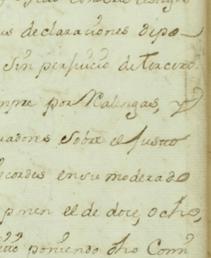 us declaraciones depo-
Sin perjuicio de tercero.
mpre por Malingas, y
uadores Sobre el Justo
cordes en su moderado
ponen el de doce, ocho,
poniendo otro Com.n